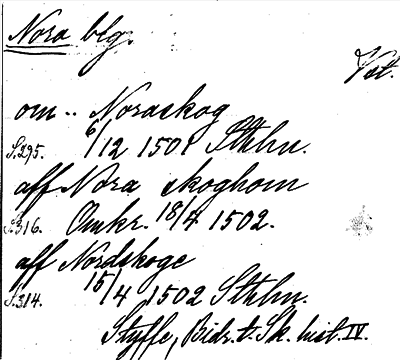 Nora blg.
Vst.
om .. Noraskog
S.295. 6/12 1501 Sthlm.
aff Nora skoghom
S.316. Omkr. 18/4 1502.
aff Nordskoge
S.314. 15/4 1502 Sthlm.
Styffe, Bidr. t. Sk. hist. IV.